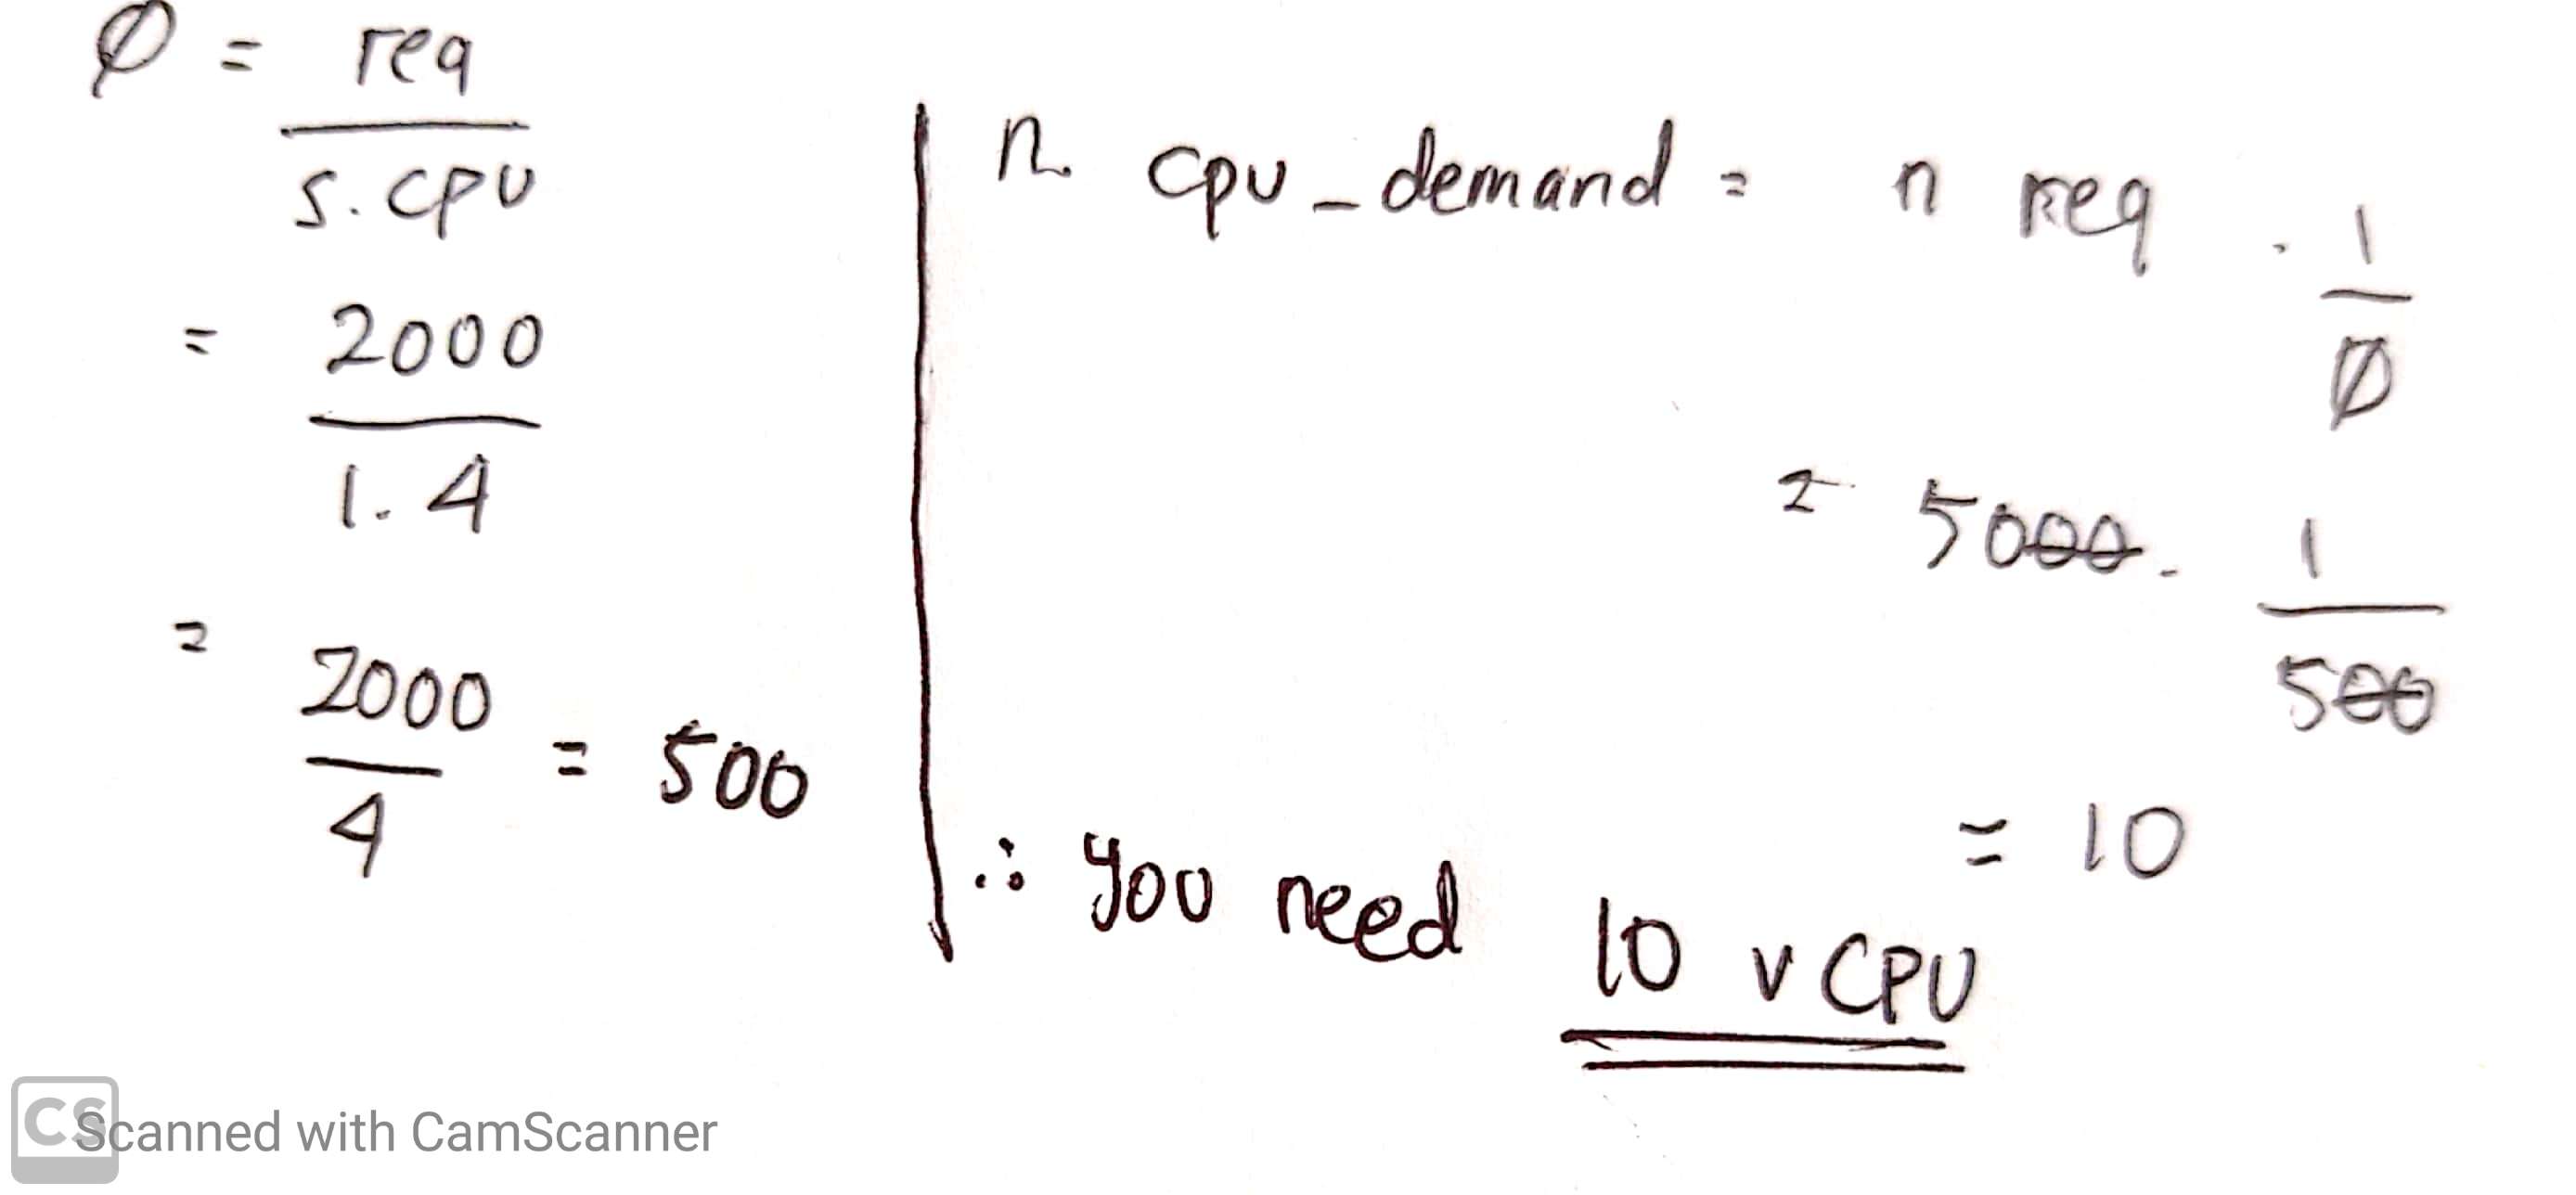 Ø = req
s. cpu
= 2000
1. 4
= 2000
4
= 500
n cpu_demand = n req . 1
Ø
= 5000. 1
500
= 10
∴ you need 10 vCPU
CS Scanned with CamScanner